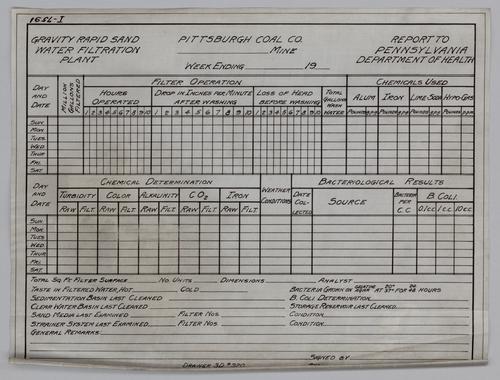 1656-I
GRAVITY RAPID SAND PITTSBURGH COAL CO. REPORT TO
WATER FILTRATION MINE PENNSYLVANIA
PLANT WEEK ENDING 19 DEPARTMENT OF HEALTH
DAY AND DATE MILLION GALLONS FILTERED FILTER OPERATION TOTAL GALLONS WASH WATER CHEMICALS USED
HOURS OPERATED DROP IN INCHES PER MINUTE AFTER WASHING LOSS OF HEAD BEFORE WASHING ALUM IRON LIME SODA HYPO GAS
1 2 3 4 5 6 7 8 9 10 1 2 3 4 5 6 7 8 9 10 1 2 3 4 5 6 7 8 9 10 POUNDS G.P.G. POUNDS G.P.G. POUNDS G.P.G. POUNDS
SUN.
MON.
TUES.
WED.
THUR.
FRI.
SAT.
DAY AND DATE CHEMICAL DETERMINATION WEATHER CONDITIONS BACTERIOLOGICAL RESULTS
TURBIDITY COLOR ALKALINITY CO2 IRON DATE COLLECTED SOURCE BACTERIA PER C.C. B. COLI.
RAW FILT. RAW FILT. RAW FILT. RAW FILT. RAW FILT. 0.1CC 1CC 10CC
SUN.
MON.
TUES.
WED.
THUR.
FRI.
SAT.
TOTAL SQ. FT. FILTER SURFACE NO. UNITS DIMENSIONS ANALYST
TASTE IN FILTERED WATER, HOT COLD BACTERIA GROWN ON GELATINE AGAR AT 20° 37° FOR 48 HOURS
SEDIMENTATION BASIN LAST CLEANED B. COLI DETERMINATION
CLEAR WATER BASIN LAST CLEANED STORAGE RESERVOIR LAST CLEANED
SAND MEDIA LAST EXAMINED FILTER NOS. CONDITION
STRAINER SYSTEM LAST EXAMINED FILTER NOS. CONDITION
GENERAL REMARKS:
SIGNED BY
DRAWER 3D #370